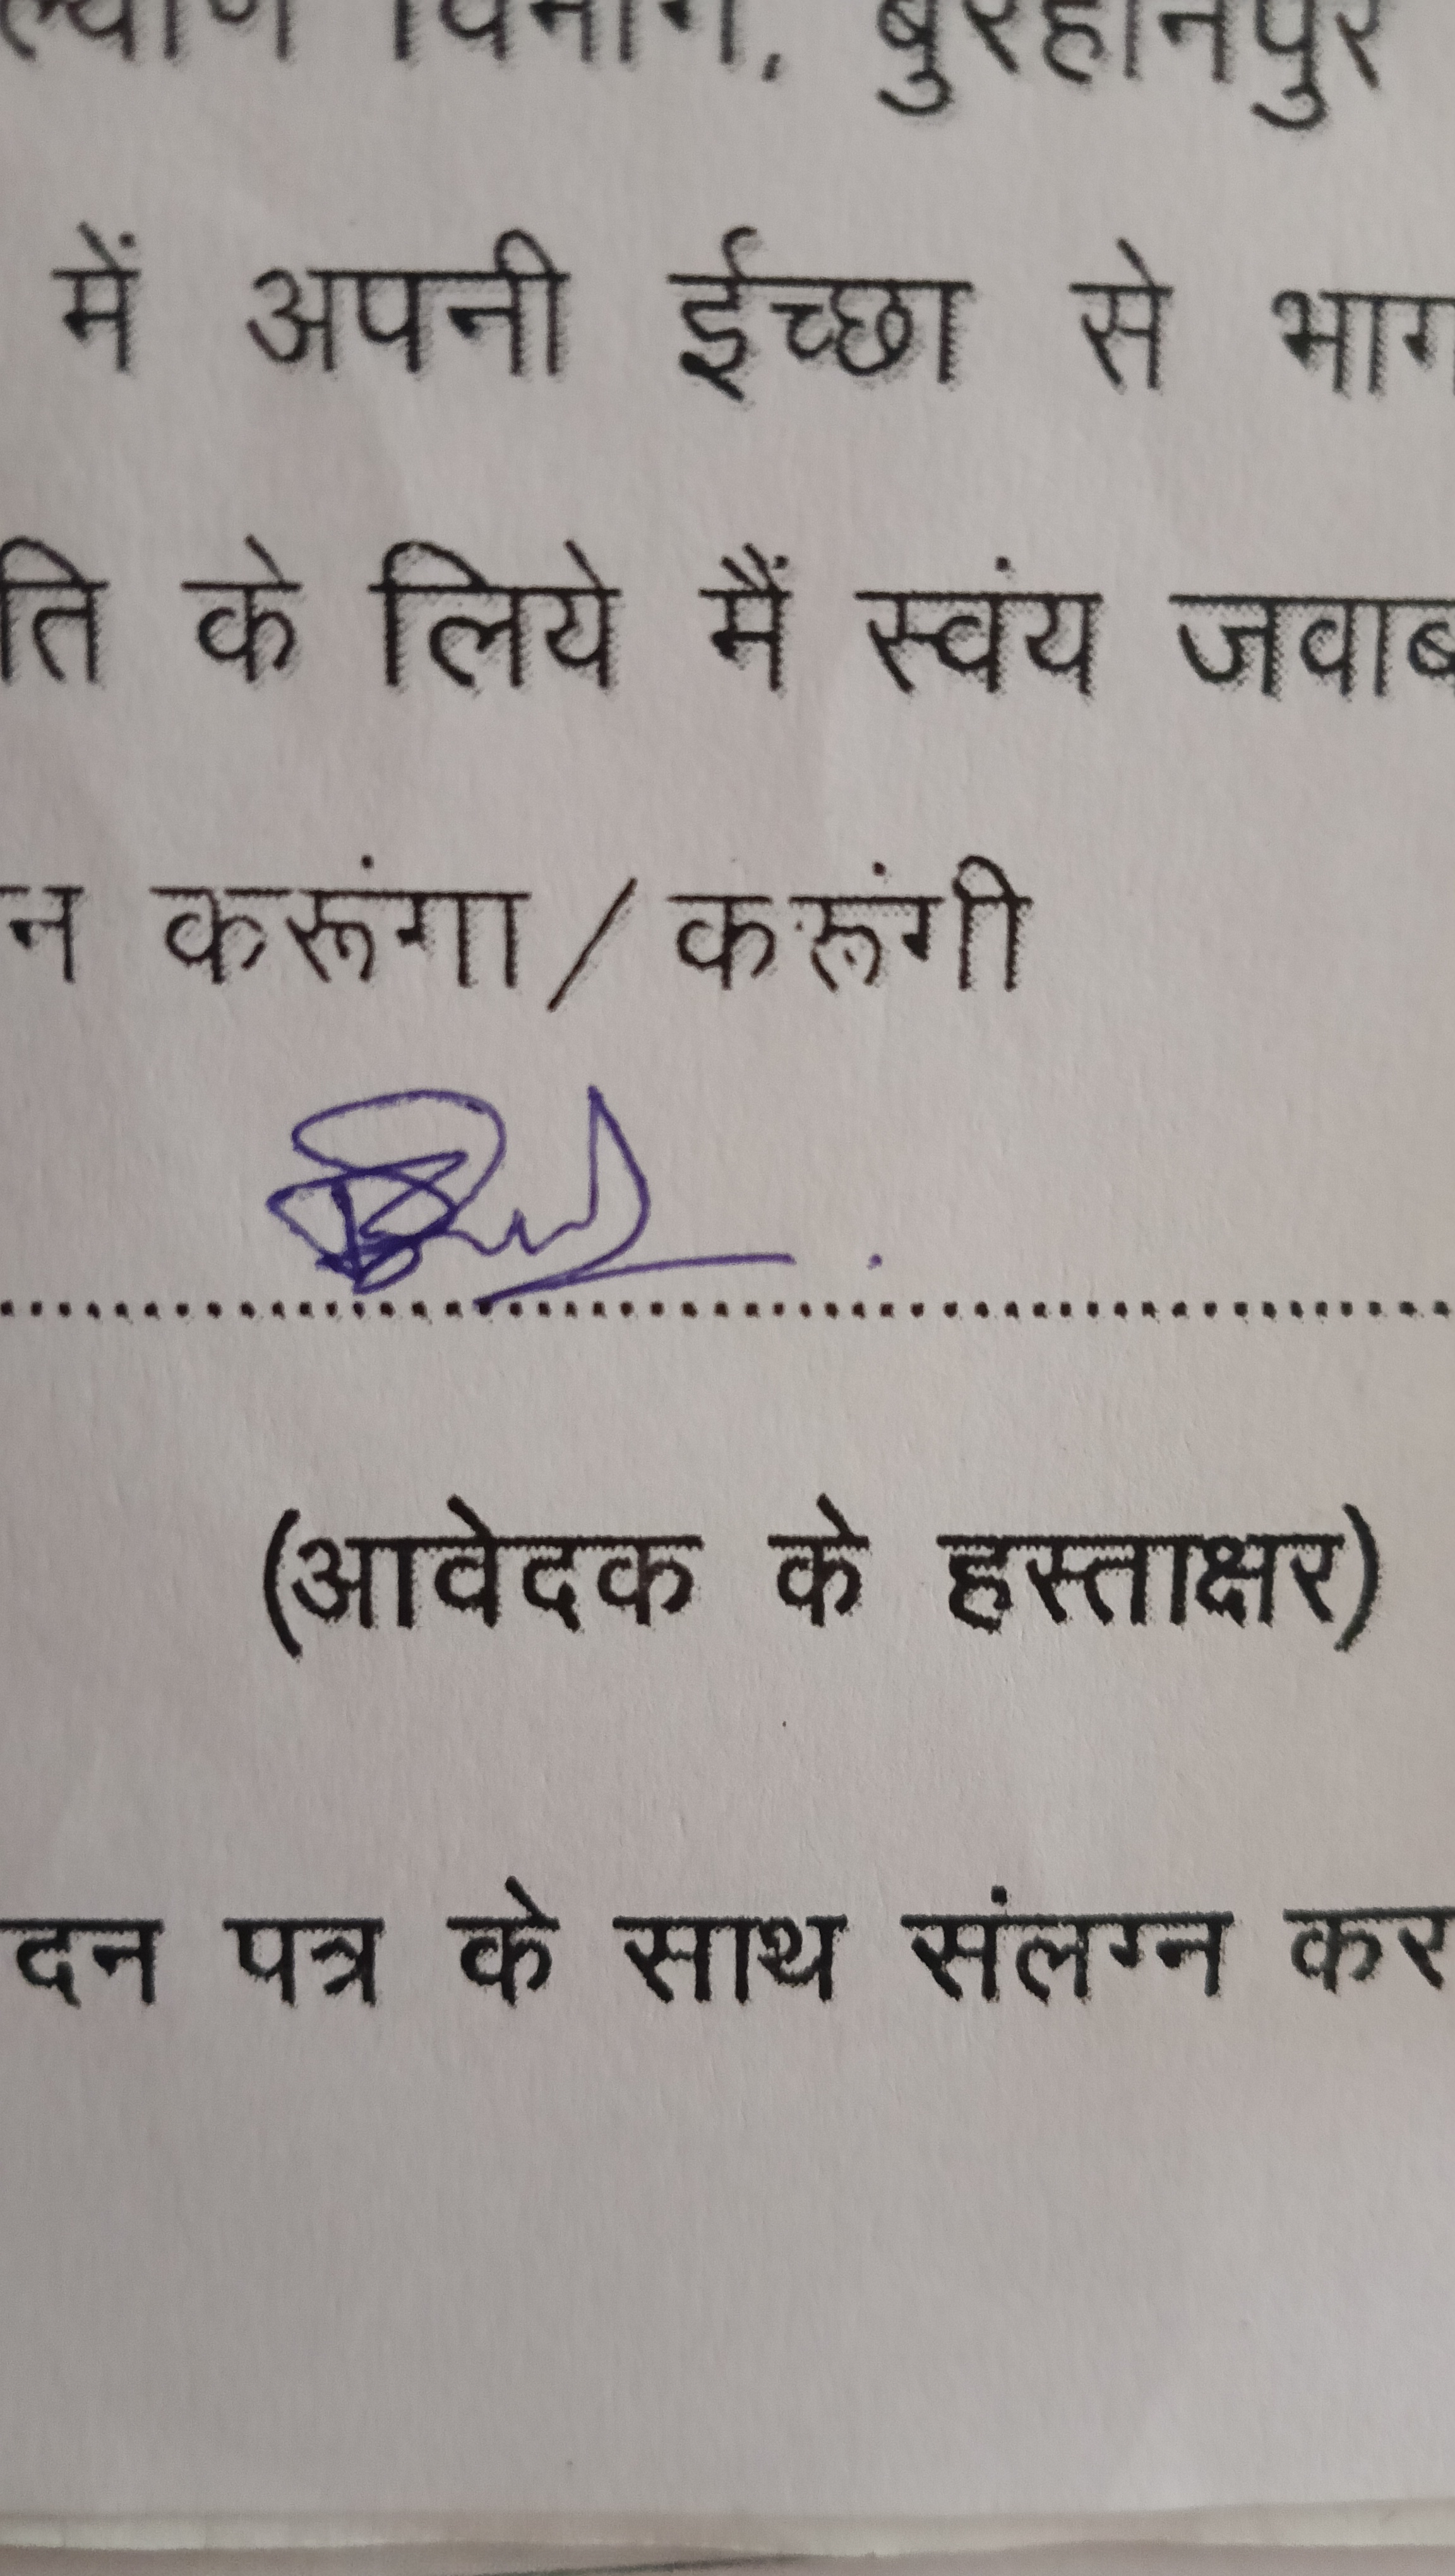 ल्याण विभाग, बुरहानपुर
में अपनी ईच्छा से भाग
ति के लिये मैं स्वंय जवाब
न करूंगा/करूंगी
(आवेदक के हस्ताक्षर)
दन पत्र के साथ संलग्न कर